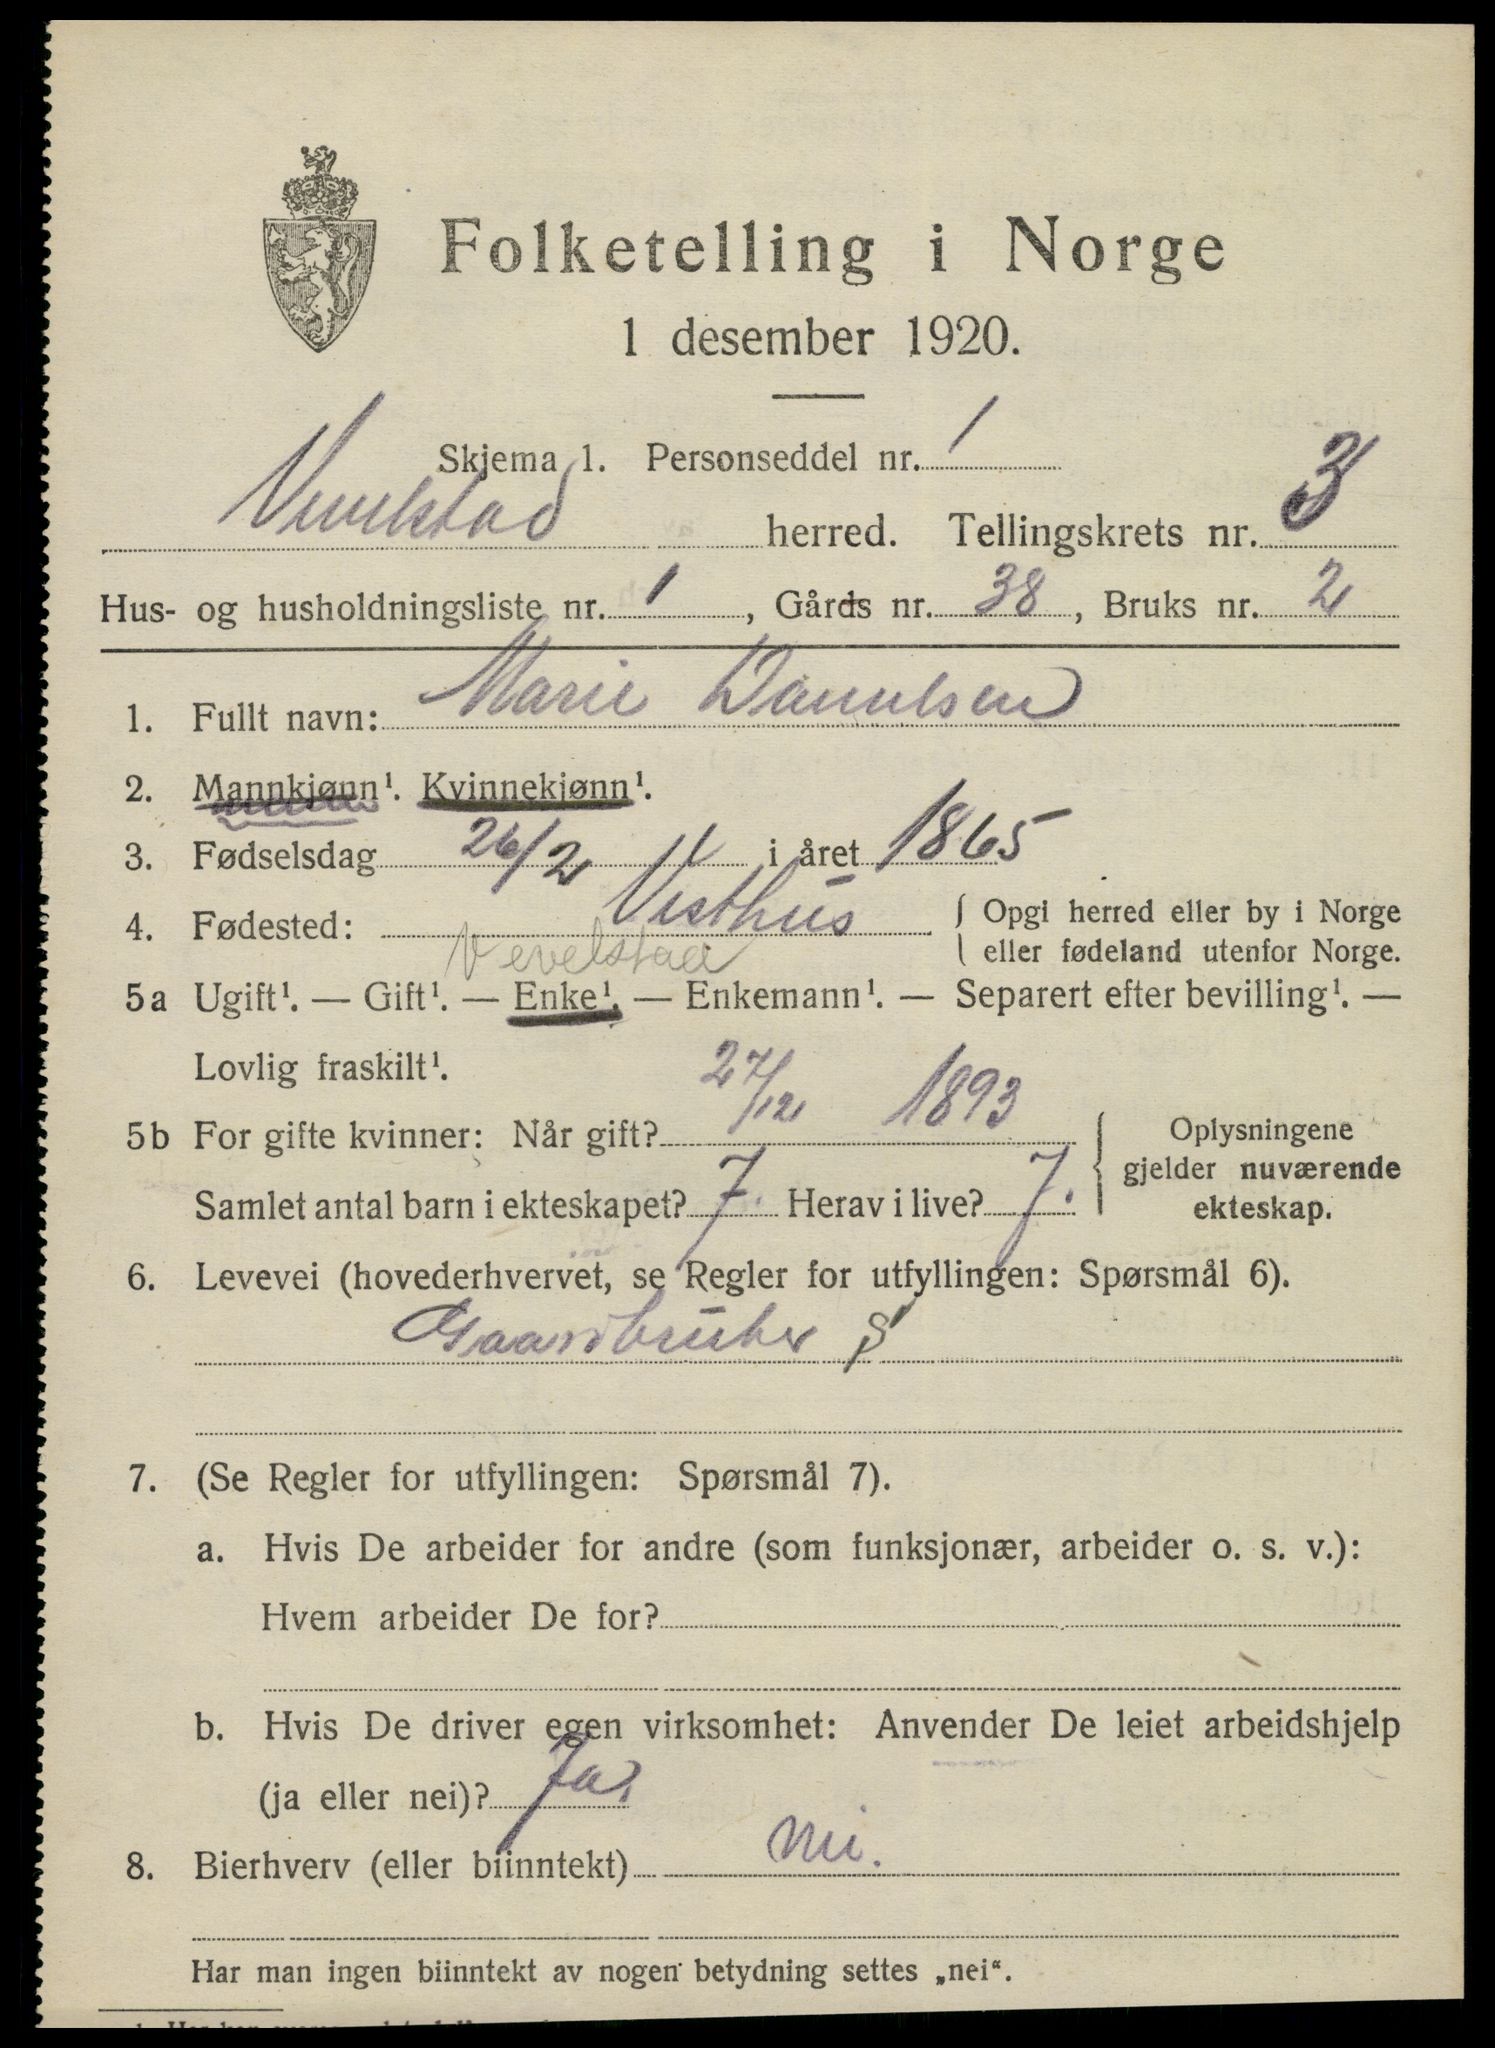 Folketelling i Norge
1 desember 1920.
Skjema 1. Personseddel nr. 1
Vevelstad herred. Tellingskrets nr. 3
Hus- og husholdningsliste nr. 1, Gårds nr. 38, Bruks nr. 2
1. Fullt navn: Marie Danielsen
2. Mannkjønn¹. Kvinnekjønn¹.
3. Fødselsdag 26/2 i året 1865
4. Fødested: Visthus { Opgi herred eller by i Norge
eller fødeland utenfor Norge.
Vevelstad
5a Ugift¹. — Gift¹. — Enke¹. — Enkemann¹. — Separert efter bevilling¹. —
Lovlig fraskilt¹.
5b For gifte kvinner: Når gift? 27/12 1893
Samlet antal barn i ekteskapet? 7. Herav i live? 7.
{ Oplysningene
gjelder nuværende
ekteskap.
6. Levevei (hovederhvervet, se Regler for utfyllingen: Spørsmål 6).
Gaardbruker S
7. (Se Regler for utfyllingen: Spørsmål 7).
a. Hvis De arbeider for andre (som funksjonær, arbeider o. s. v.):
Hvem arbeider De for?
b. Hvis De driver egen virksomhet: Anvender De leiet arbeidshjelp
(ja eller nei)? Ja.
8. Bierhverv (eller biinntekt) nei.
Har man ingen biinntekt av nogen betydning settes „nei“.